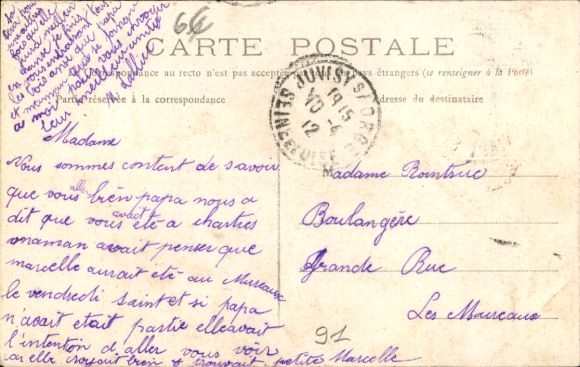 6€
CARTE POSTALE
La Correspondance au recto n'est pas acceptée par tous les pays étrangers (se renseigner à la Poste)
Partie réservée à la correspondance
Adresse du destinataire
JUVISY S/ ORGE
SEINE ET OISE
10
12 -4
1915
Madame
Nous sommes content de savoir
que vous allez bien papa nous a
dit que vous avait été a chartres
maman avait penser que
marcelle aurait été au Mureaux
le vendredi saint et si papa
n'avait était partie elle avait
l'intention d'aller vous voir
car elle croyait bien y trouvait petite Marcelle
en vous embrassant tous
les trois ainsi que papa
et maman
a moi pour vous envoyer
leur meilleur amitié
Madame
Boulangère
Grande Rue
Les Mureaux
91